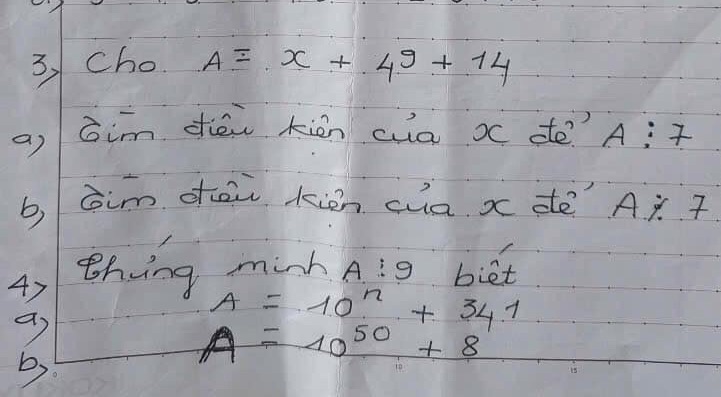 3) Cho A = x + 49 + 14
a) Tìm điều kiện của x để A ⋮ 7
b) Tìm điều kiện của x để A ⋮̸ 7
4) Chứng minh A ⋮ 9 biết
a) A = 10ⁿ + 341
b) A = 10⁵⁰ + 8
10 15